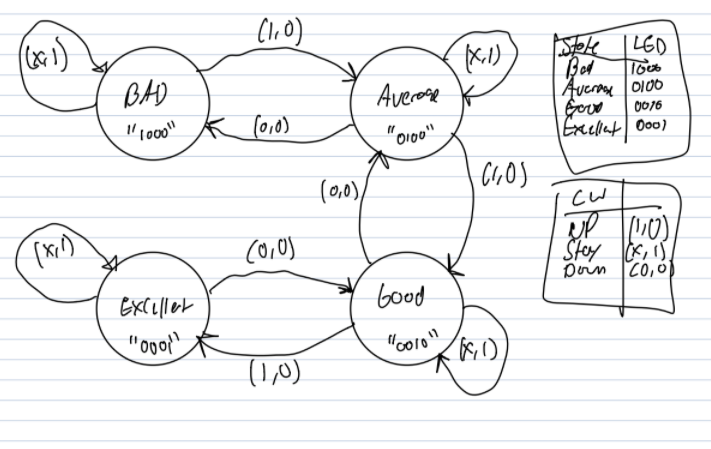 (1,0)
(x,1)
(x,1)
BAD
"1000"
Average
"0100"
(0,0)
(0,0)
(1,0)
(x,1)
(0,0)
Excellet
"0001"
Good
"0010"
(1,0)
(x,1)
State LED
Bad 1000
Average 0100
Good 0010
Excellet 0001
CW
UP (1,0)
Stay (x,1)
Down (0,0)